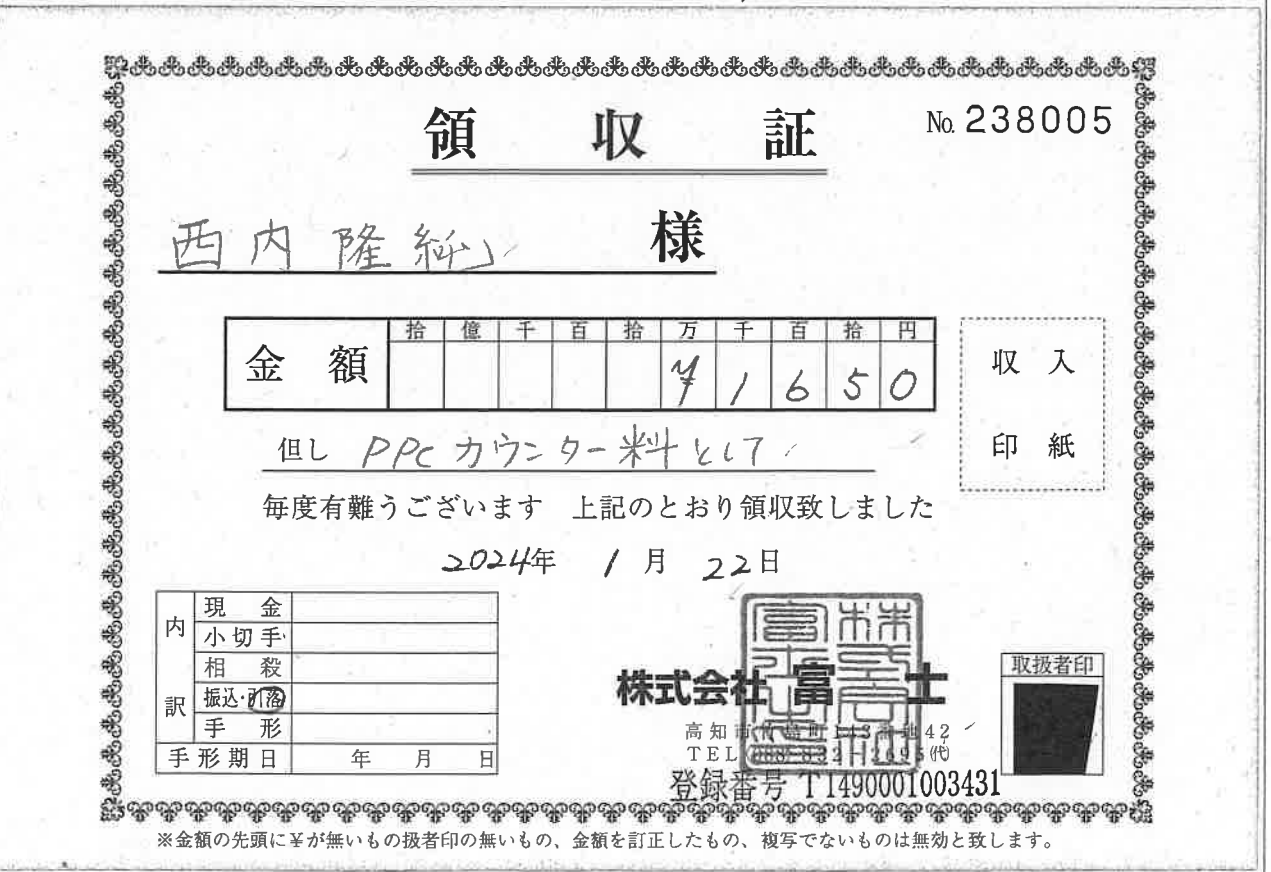 領収証
No. 238005
西内隆純 様
金額 拾 億 千 百 拾 万 千 百 拾 円
¥1650
収入
印紙
但し PPCカウンター料として
毎度有難うございます 上記のとおり領収致しました
2024年 1月 22日
内訳
現金
小切手
相殺
振込・引落
手形
手形期日 年 月 日
株式会社 富士
取扱者印
高知市 町143番地42
TEL (088) 832 2695(代)
登録番号 T1490001003431
※金額の先頭に¥が無いもの扱者印の無いもの、金額を訂正したもの、複写でないものは無効と致します。